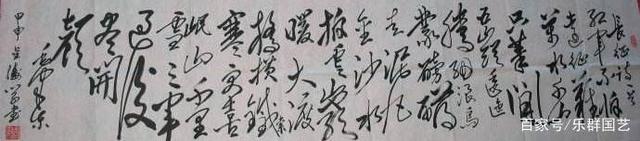 长征诗一首
红军不怕
远征难
万水千山
只等闲
五岭逶迤
腾细浪乌
蒙磅礴
走泥丸
金沙水
拍云崖
暖大渡
桥横铁索
寒更喜
岷山千里
雪三军
过后
尽开
颜
毛泽东
甲申
百家号/乐群国艺